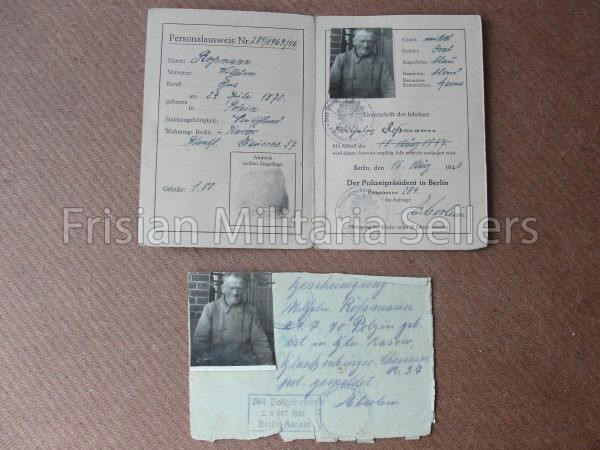 Personalausweis Nr. 284/1969/46
Name: Roßmann
Vorname: Wilhelm
Beruf:
am 24. Juli 1870.
geboren
in Polzin
Staatsangehörigkeit: Deutschland
Wohnung: Berlin - Karow
Chaussee 37
Abdruck
rechtes Zeigefinger
Gebühr: 1.00
Gestalt: mittel
Gesicht: Oval
Augenfarbe: blau
Haarfarbe: blond
Besondere
Kennzeichen: keine
Unterschrift des Inhabers
Wilhelm Roßmann
Mit Ablauf des 15. März
wird dieser Ausweis ungültig, falls nicht verlängert wird.
Berlin, den 16. März 1946
Der Polizeipräsident in Berlin
Polizeirevier 284.
Im Auftrage
Eberlein
Frisian Militaria Sellers
Bescheinigung.
Wilhelm Roßmann
24.7.70 Polzin geb.
ist in Bln. Karow,
Blankenburger Chaussee
Nr. 37
pol. gemeldet.
Eberlein
284. Polizeirevier
OKT. 1945
Berlin-Karow